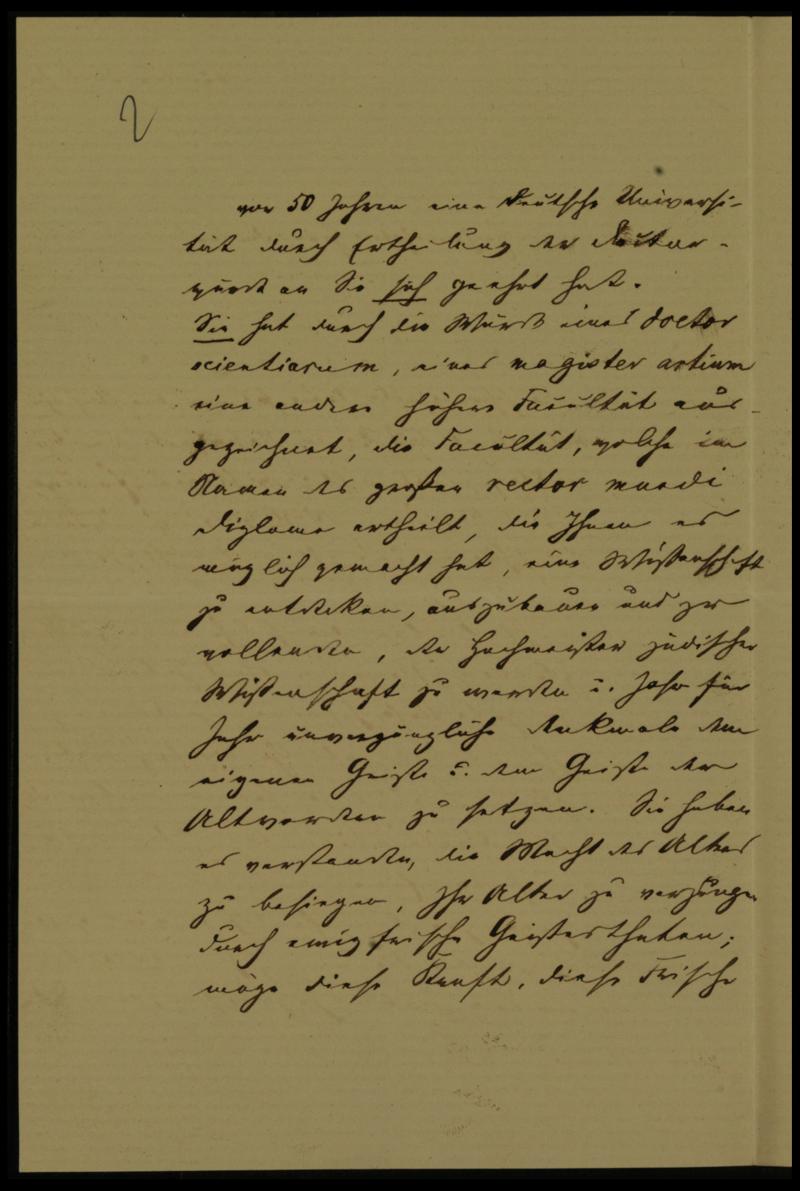 2
vor 50 Jahren eine deutsche Universi-
tät durch Ertheilung der Doctor-
würde an Sie sich geehrt hat.
Sie hat durch die Würde eines doctor
scientiarum, eines magister artium
eine andere höhere Facultät aus-
gezeichnet, die Facultät, welche im
Namen des großen rector mundi
Diplome ertheilt, die Ihnen es
möglich gemacht hat, eine Wissenschaft
zu entdeken, auszubauen und zu
vollenden, der Hochmeister jüdischer
Wißenschaft zu werden u. Jahr für
Jahr unvergängliche Denkmale dem
eigenen Geiste u. dem Geiste der
Altvorderen zu setzen. Sie haben
es verstanden, die Macht des Alters
zu besiegen, Ihr Alter zu verjüngen
durch ewig frische Geistesthaten;
möge diese Kraft, diese Frische